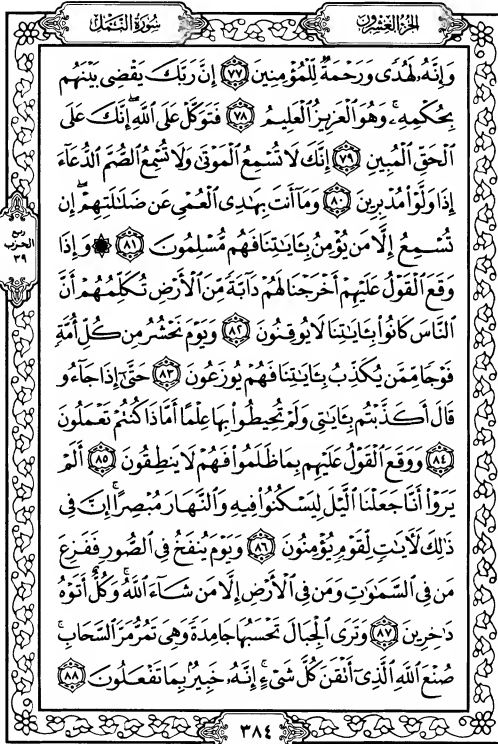 سُورَةُ النَّمْلِ
الجُزْءُ العِشْرُونَ
وَإِنَّهُۥ لَهُدًى وَرَحْمَةٌ لِّلْمُؤْمِنِينَ ٧٧ إِنَّ رَبَّكَ يَقْضِى بَيْنَهُم
بِحُكْمِهِۦ ۚ وَهُوَ ٱلْعَزِيزُ ٱلْعَلِيمُ ٧٨ فَتَوَكَّلْ عَلَى ٱللَّهِ ۖ إِنَّكَ عَلَى
ٱلْحَقِّ ٱلْمُبِينِ ٧٩ إِنَّكَ لَا تُسْمِعُ ٱلْمَوْتَىٰ وَلَا تُسْمِعُ ٱلصُّمَّ ٱلدُّعَآءَ
إِذَا وَلَّوْا۟ مُدْبِرِينَ ٨٠ وَمَآ أَنتَ بِهَٰدِى ٱلْعُمْىِ عَن ضَلَٰلَتِهِمْ ۖ إِن
تُسْمِعُ إِلَّا مَن يُؤْمِنُ بِـَٔايَٰتِنَا فَهُم مُّسْلِمُونَ ٨١ ۞ وَإِذَا
وَقَعَ ٱلْقَوْلُ عَلَيْهِمْ أَخْرَجْنَا لَهُمْ دَآبَّةً مِّنَ ٱلْأَرْضِ تُكَلِّمُهُمْ أَنَّ
ٱلنَّاسَ كَانُوا۟ بِـَٔايَٰتِنَا لَا يُوقِنُونَ ٨٢ وَيَوْمَ نَحْشُرُ مِن كُلِّ أُمَّةٍ
فَوْجًا مِّمَّن يُكَذِّبُ بِـَٔايَٰتِنَا فَهُمْ يُوزَعُونَ ٨٣ حَتَّىٰٓ إِذَا جَآءُو
قَالَ أَكَذَّبْتُم بِـَٔايَٰتِى وَلَمْ تُحِيطُوا۟ بِهَا عِلْمًا أَمَّاذَا كُنتُمْ تَعْمَلُونَ
٨٤ وَوَقَعَ ٱلْقَوْلُ عَلَيْهِم بِمَا ظَلَمُوا۟ فَهُمْ لَا يَنطِقُونَ ٨٥ أَلَمْ
يَرَوْا۟ أَنَّا جَعَلْنَا ٱلَّيْلَ لِيَسْكُنُوا۟ فِيهِ وَٱلنَّهَارَ مُبْصِرًا ۚ إِنَّ فِى
ذَٰلِكَ لَـَٔايَٰتٍ لِّقَوْمٍ يُؤْمِنُونَ ٨٦ وَيَوْمَ يُنفَخُ فِى ٱلصُّورِ فَفَزِعَ
مَن فِى ٱلسَّمَٰوَٰتِ وَمَن فِى ٱلْأَرْضِ إِلَّا مَن شَآءَ ٱللَّهُ ۚ وَكُلٌّ أَتَوْهُ
دَٰخِرِينَ ٨٧ وَتَرَى ٱلْجِبَالَ تَحْسَبُهَا جَامِدَةً وَهِىَ تَمُرُّ مَرَّ ٱلسَّحَابِ ۚ
صُنْعَ ٱللَّهِ ٱلَّذِىٓ أَتْقَنَ كُلَّ شَىْءٍ ۚ إِنَّهُۥ خَبِيرٌۢ بِمَا تَفْعَلُونَ ٨٨
ربع
الحزب
٣٩
٣٨٤